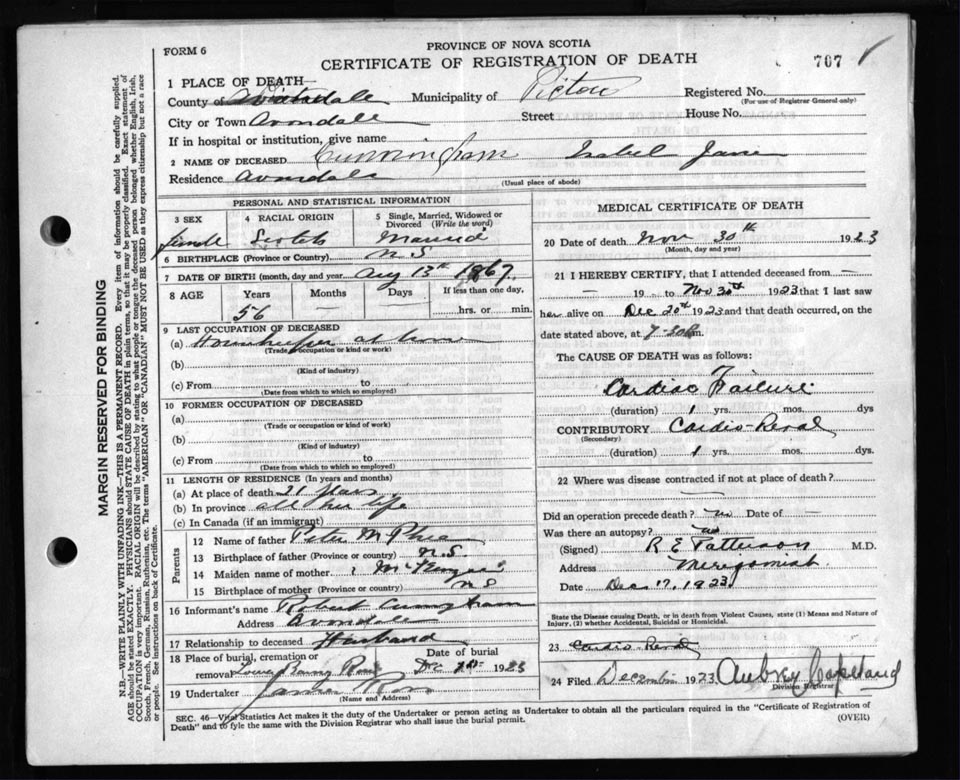 FORM 6
PROVINCE OF NOVA SCOTIA
CERTIFICATE OF REGISTRATION OF DEATH
707
1 PLACE OF DEATH—
County of Municipality of Pictou Registered No.
(For use of Registrar General only)
City or Town Avondale Street House No.
If in hospital or institution, give name
2 NAME OF DECEASED Cunningham Isabel Jane
Residence Avondale
(Usual place of abode)
PERSONAL AND STATISTICAL INFORMATION
3 SEX 4 RACIAL ORIGIN 5 Single, Married, Widowed or Divorced (Write the word)
female Scotch Married
6 BIRTHPLACE (Province or Country) N.S
7 DATE OF BIRTH (month, day and year) Aug 13th 1867
8 AGE Years Months Days If less than one day,
56 hrs. or min.
9 LAST OCCUPATION OF DECEASED
(a) Housekeeper at home
(Trade, occupation or kind of work)
(b)
(Kind of industry)
(c) From to
(Date from which to which so employed)
10 FORMER OCCUPATION OF DECEASED
(a)
(Trade or occupation or kind of work)
(b)
(Kind of industry)
(c) From to
(Date from which to which so employed)
11 LENGTH OF RESIDENCE (In years and months)
(a) At place of death 21 years
(b) In province all her life
(c) In Canada (if an immigrant)
Parents
12 Name of father Peter McPhee
13 Birthplace of father (Province or country) N.S.
14 Maiden name of mother
15 Birthplace of mother (Province or country) N S
16 Informant's name Robert Cunningham
Address Avondale
17 Relationship to deceased Husband
18 Place of burial, cremation or removal Barney River Date of burial Dec 1923
19 Undertaker James Ross
(Name and Address)
MEDICAL CERTIFICATE OF DEATH
20 Date of death Nov 30th 1923
(Month, day and year)
21 I HEREBY CERTIFY, that I attended deceased from —
— 19 to Nov 30th 1923 that I last saw
her alive on Dec 20th 1923 and that death occurred, on the
date stated above, at
The CAUSE OF DEATH was as follows:
Cardiac Failure
(duration) 1 yrs. mos. dys
CONTRIBUTORY Cardio-Renal
(Secondary)
(duration) 1 yrs. mos. dys.
22 Where was disease contracted if not at place of death?
—
Did an operation precede death? no Date of —
Was there an autopsy? no
(Signed) R E Patterson M.D.
Address Merigomish
Date Dec 17, 1923
State the Disease causing Death, or in death from Violent Causes, state (1) Means and Nature of Injury, (2) whether Accidental, Suicidal or Homicidal.
23 Cardio-Renal
24 Filed December 1923 Aubrey Copeland
Division Registrar
SEC. 46—Vital Statistics Act makes it the duty of the Undertaker or person acting as Undertaker to obtain all the particulars required in the "Certificate of Registration of
Death" and to fyle the same with the Division Registrar who shall issue the burial permit.
(OVER)
MARGIN RESERVED FOR BINDING
N.B.—WRITE PLAINLY WITH UNFADING INK—THIS IS A PERMANENT RECORD. Every item of information should be carefully supplied.
AGE should be stated EXACTLY. PHYSICIANS should STATE CAUSE OF DEATH in plain terms, so that it may be properly classified. Exact statement of
OCCUPATION is very important. RACIAL ORIGIN will be described by stating to what people or tongue the deceased person belonged whether English, Irish,
Scotch, French, German, Russian, Ruthenian, etc. The terms "AMERICAN" OR "CANADIAN" MUST NOT BE USED as they express citizenship but not a race
or people. See instructions on back of Certificate.